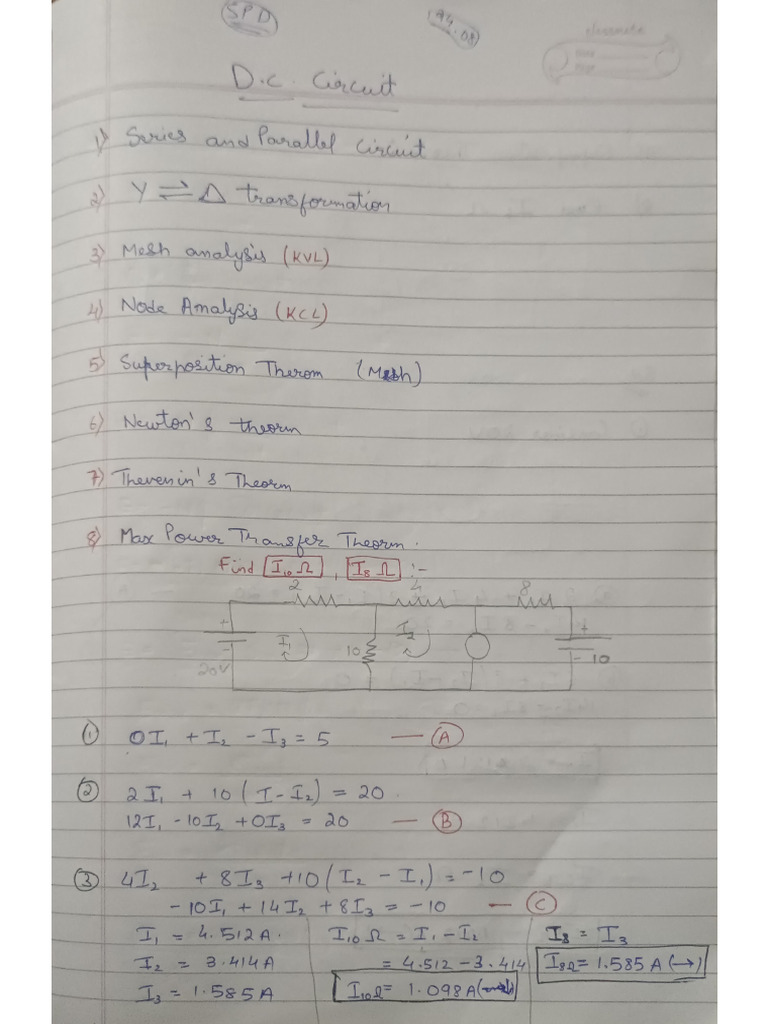 SPD
14.08
D.C. Circuit
1) Series and Parallel Circuit
2) Y ⇌ Δ transformation
3) Mesh analysis (KVL)
4) Node Analysis (KCL)
5) Superposition Therom (Mesh)
6) Newton's theorm
7) Thevenin's Theorm
8) Max Power Transfer Theorm.
Find I₁₀ Ω , I₈ Ω :-
2 4 8
+ I₁ 10 I₂ +
-
20V - 10
① 0I₁ + I₂ - I₃ = 5 — Ⓐ
② 2I₁ + 10(I - I₂) = 20.
12I₁ - 10I₂ + 0I₃ = 20 — Ⓑ
③ 4I₂ + 8I₃ + 10(I₂ - I₁) = -10
-10I₁ + 14I₂ + 8I₃ = -10 — Ⓒ
I₁ = 4.512A. I₁₀ Ω = I₁ - I₂ I₈ = I₃
I₂ = 3.414A = 4.512 - 3.414 I₈Ω = 1.585 A (→)
I₃ = 1.585A I₁₀Ω = 1.098A